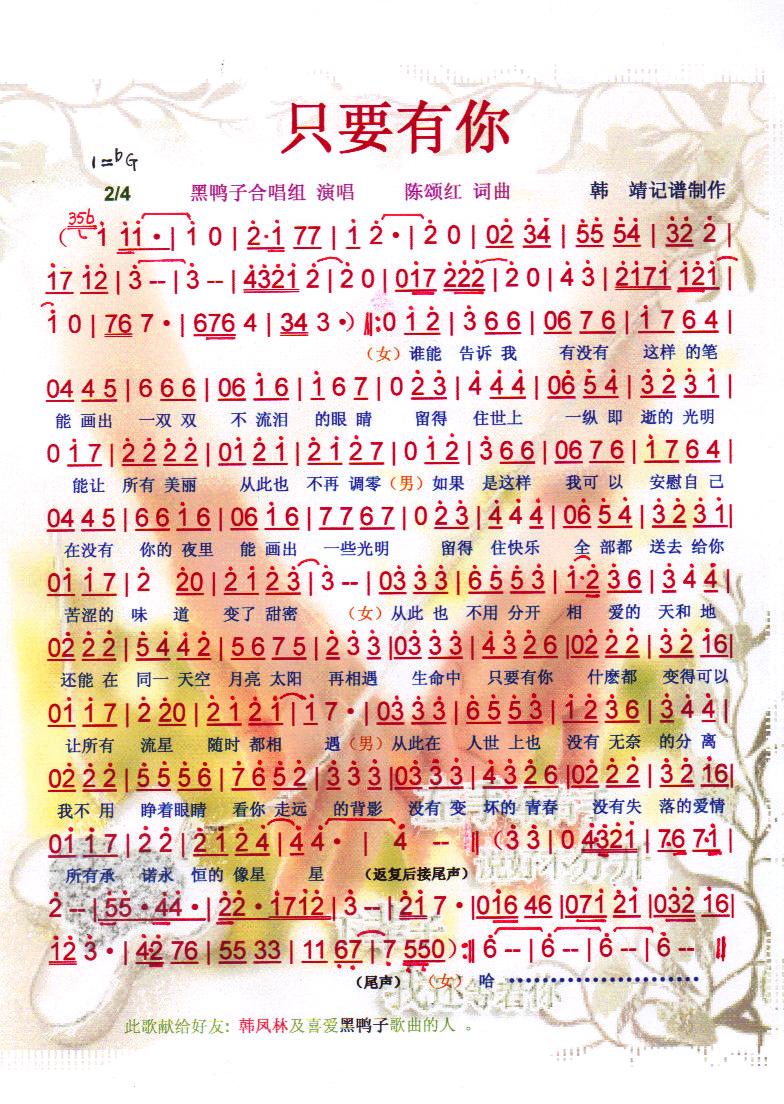 只要有你
1=♭G
2/4 黑鸭子合唱组 演唱 陈颂红 词曲 韩 靖记谱制作
356
( 1 11 · | 1 0 | 2·1 77 | 1 2 · | 2 0 | 02 34 | 55 54 | 32 2 |
17 12 | 3 -- | 3 -- | 4321 2 | 2 0 | 017 222 | 2 0 | 4 3 | 2171 121 |
1 0 | 76 7 · | 676 4 | 34 3 ·) ‖:0 1 2 | 3 6 6 | 06 7 6 | 1 7 6 4 |
（女）谁能 告诉 我 有没有 这样 的笔
04 4 5 | 6 6 6 | 06 1 6 | 1 6 7 | 0 2 3 | 4 4 4 | 06 5 4 | 3 2 3 1 |
能 画出 一双 双 不 流泪 的眼 睛 留得 住世上 一纵 即 逝的 光明
0 1 7 | 2 2 2 2 | 01 2 1 | 2 1 2 7 | 0 1 2 | 3 6 6 | 06 7 6 | 1 7 6 4 |
能让 所有 美丽 从此也 不再 调零（男）如果 是这样 我可 以 安慰自 己
04 4 5 | 6 6 1 6 | 06 1 6 | 7 7 6 7 | 0 2 3 | 4 4 4 | 06 5 4 | 3 2 3 1|
在没有 你的 夜里 能 画出 一些光明 留得 住快乐 全 部都 送去 给你
01 1 7 | 2 20 | 2 1 2 3 | 3 -- | 03 3 3 | 6 5 5 3 | 1·2 3 6 | 3 4 4 |
苦涩的 味 道 变了 甜蜜 （女）从此 也 不用 分开 相 爱的 天和 地
02 2 2 | 5 4 4 2 | 5 6 7 5 | 2 3 3 |03 3 3 | 4 3 2 6 |02 2 2 | 3 2 16|
还能 在 同一 天空 月亮 太阳 再相遇 生命中 只要有你 什麽都 变得可以
01 1 7 | 2 20 | 2 1 2 1 | 1 7 · | 03 3 3 | 6 5 5 3 | 1 2 3 6 | 3 4 4 |
让所有 流星 随时 都相 遇（男）从此在 人世 上也 没有 无奈 的分 离
02 2 2 | 5 5 5 6 | 7 6 5 2 | 3 3 3 |03 3 3 | 4 3 2 6 |02 2 2 | 3 2 16|
我不 用 睁着眼睛 看你 走远 的背影 没有 变 坏的 青春 没有失 落的爱情
01 1 7 | 2 2 | 2 1 2 4 | 4 4 · | 4 -- ‖ (3 3 | 0 4321 | 7·6 7·1 |
所有承 诺永 恒的 像星 星 （返复后接尾声）
2 -- | 55 · 44 · | 22 · 1712 | 3 -- | 21 7 · |016 46 |071 21 |032 16|
12 3 · | 42 76 | 55 33 | 11 67 | 7 550）:‖ 6 -- | 6 -- | 6 -- | 6 -- ‖
（尾声） （女） 哈 ····························
此歌献给好友: 韩凤林及喜爱黑鸭子歌曲的人 。